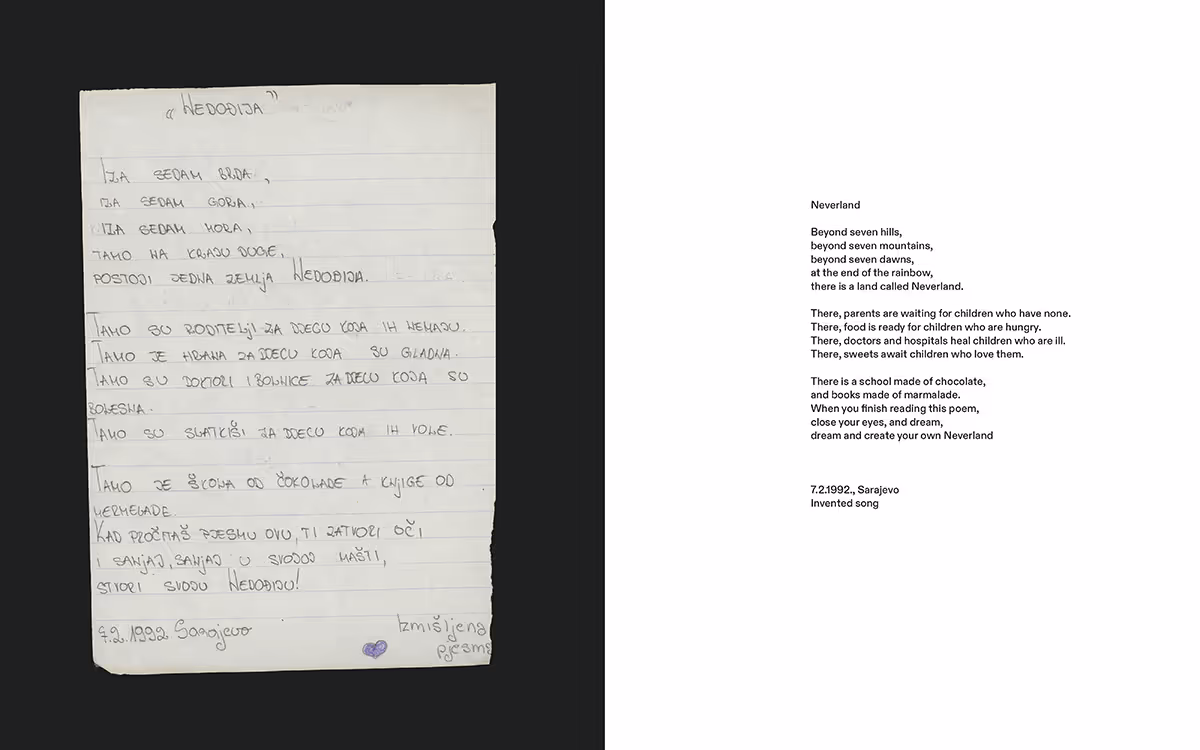 „NEDOĐIJA"
IZA SEDAM BRDA,
IZA SEDAM GORA,
IZA SEDAM MORA,
TAMO NA KRAJU DUGE,
POSTOJI JEDNA ZEMLJA NEDOĐIJA.
TAMO SU RODITELJI ZA DJECU KOJA IH NEMAJU.
TAMO JE HRANA ZA DJECU KOJA SU GLADNA.
TAMO SU DOKTORI I BOLNICE ZA DJECU KOJA SU
BOLESNA.
TAMO SU SLATKIŠI ZA DJECU KOJA IH VOLE.
TAMO JE ŠKOLA OD ČOKOLADE A KNJIGE OD
MERMELADE.
KAD PROČITAŠ PJESMU OVU, TI ZATVORI OČI
I SANJAJ, SANJAJ U SVOJOJ MAŠTI,
STVORI SVOJU NEDOĐIJU!
7.2.1992 Sarajevo
Izmišljena
pjesma
Neverland
Beyond seven hills,
beyond seven mountains,
beyond seven dawns,
at the end of the rainbow,
there is a land called Neverland.
There, parents are waiting for children who have none.
There, food is ready for children who are hungry.
There, doctors and hospitals heal children who are ill.
There, sweets await children who love them.
There is a school made of chocolate,
and books made of marmalade.
When you finish reading this poem,
close your eyes, and dream,
dream and create your own Neverland
7.2.1992., Sarajevo
Invented song